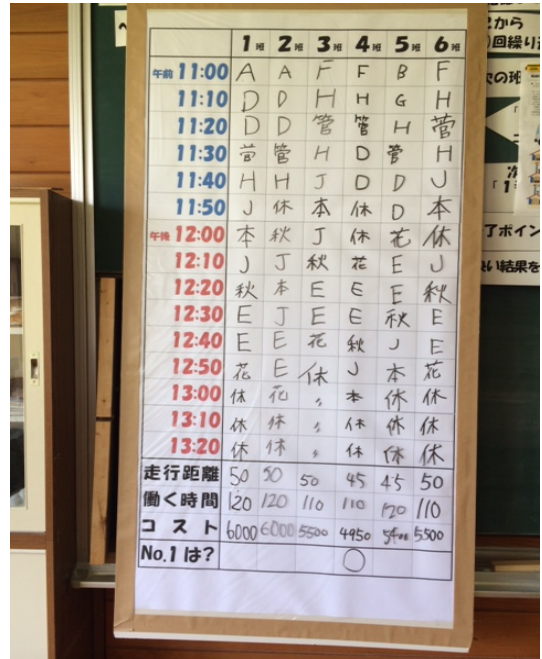 1班 2班 3班 4班 5班 6班
午前 11:00 A A F F B F
11:10 D D H H G H
11:20 D D 管 管 H 菅
11:30 営 管 H D 管 H
11:40 H H J D D J
11:50 J 休 本 休 D 本
午後 12:00 本 秋 J 休 花 休
12:10 J J 秋 花 E J
12:20 秋 本 E E E 秋
12:30 E J E E 秋 E
12:40 E E 花 秋 J E
12:50 花 E 休 J 本 花
13:00 休 花 〃 本 休 休
13:10 休 休 〃 休 休 休
13:20 休 休 〃 休 休 休
走行距離 50 50 50 45 45 50
働く時間 120 120 110 110 120 110
コスト 6000 6000 5500 4950 5400 5500
No.1は? ○
から
回繰り
の班
次
「1
了ポイン
い結果を